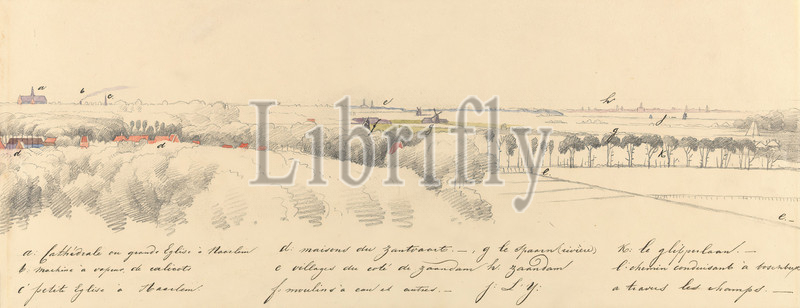 a b c e h
f g j g k
d d e
e
Librifly
a. Cathédrale ou grande Eglise à Haarlem
b. machine à vapeur, de calicots
c petite Eglise à Haarlem.
d. maisons du Zantvaart. —, g le Spaarn (rivière)
e villages du coté de Zaandam h. Zaandam
f. moulins à eau et autres. — j. L. Y.
K. le glipperlaan. —
l. chemin conduisant à
a travers les champs. —